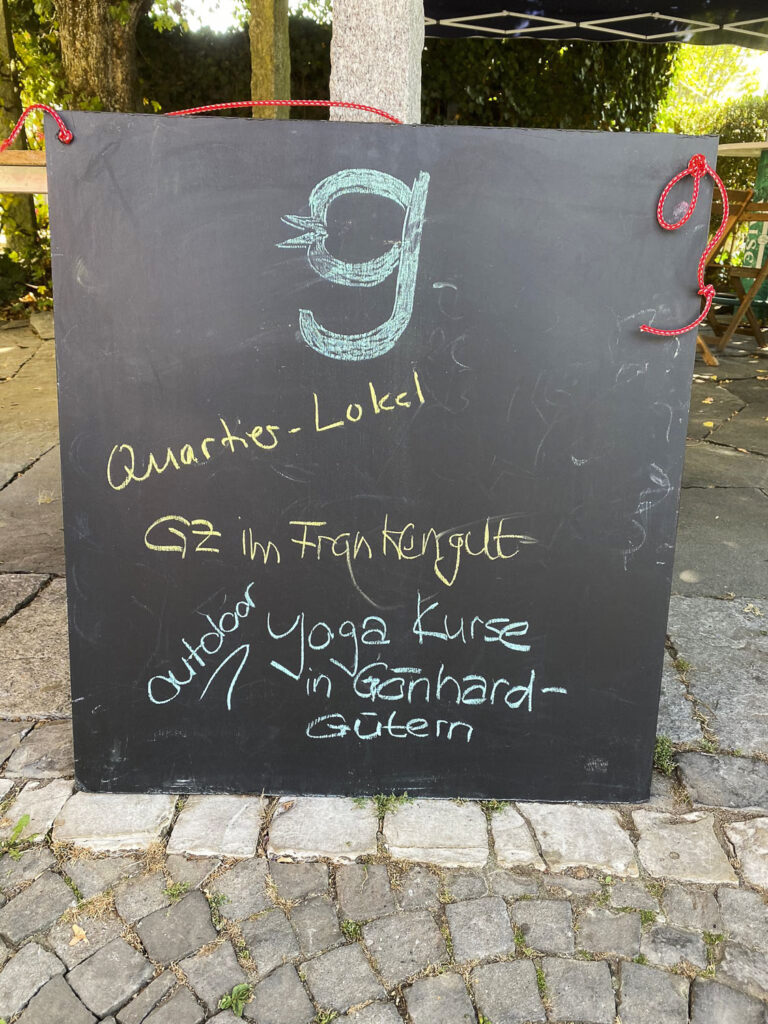 g
Quartier-Lokal
GZ im Frankengut
outdoor Yoga Kurse
in Gönhard-
Gütern